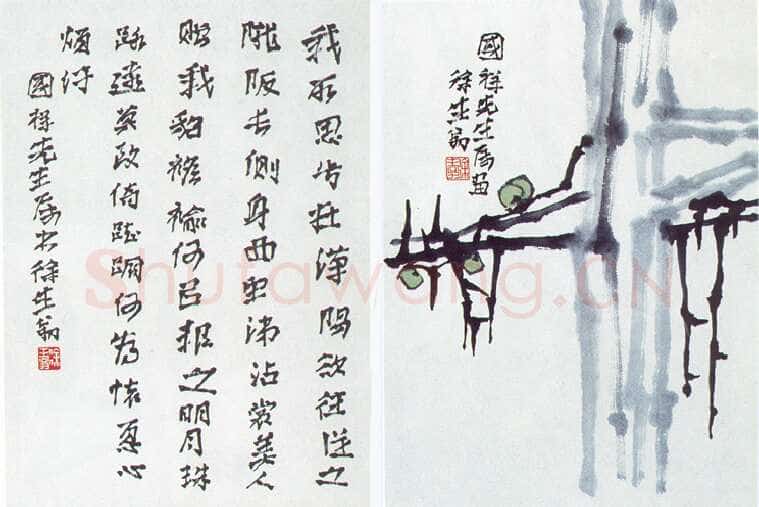 我所思兮在漢陽欲往從之
隴阪長側身西望涕沾裳美人
贈我貂襜褕何以報之明月珠
路遠莫致倚踟躕何為懷憂心
煩紆
國祥先生屬書徐生翁
國祥先生屬畫
徐生翁
Shufawang.CN